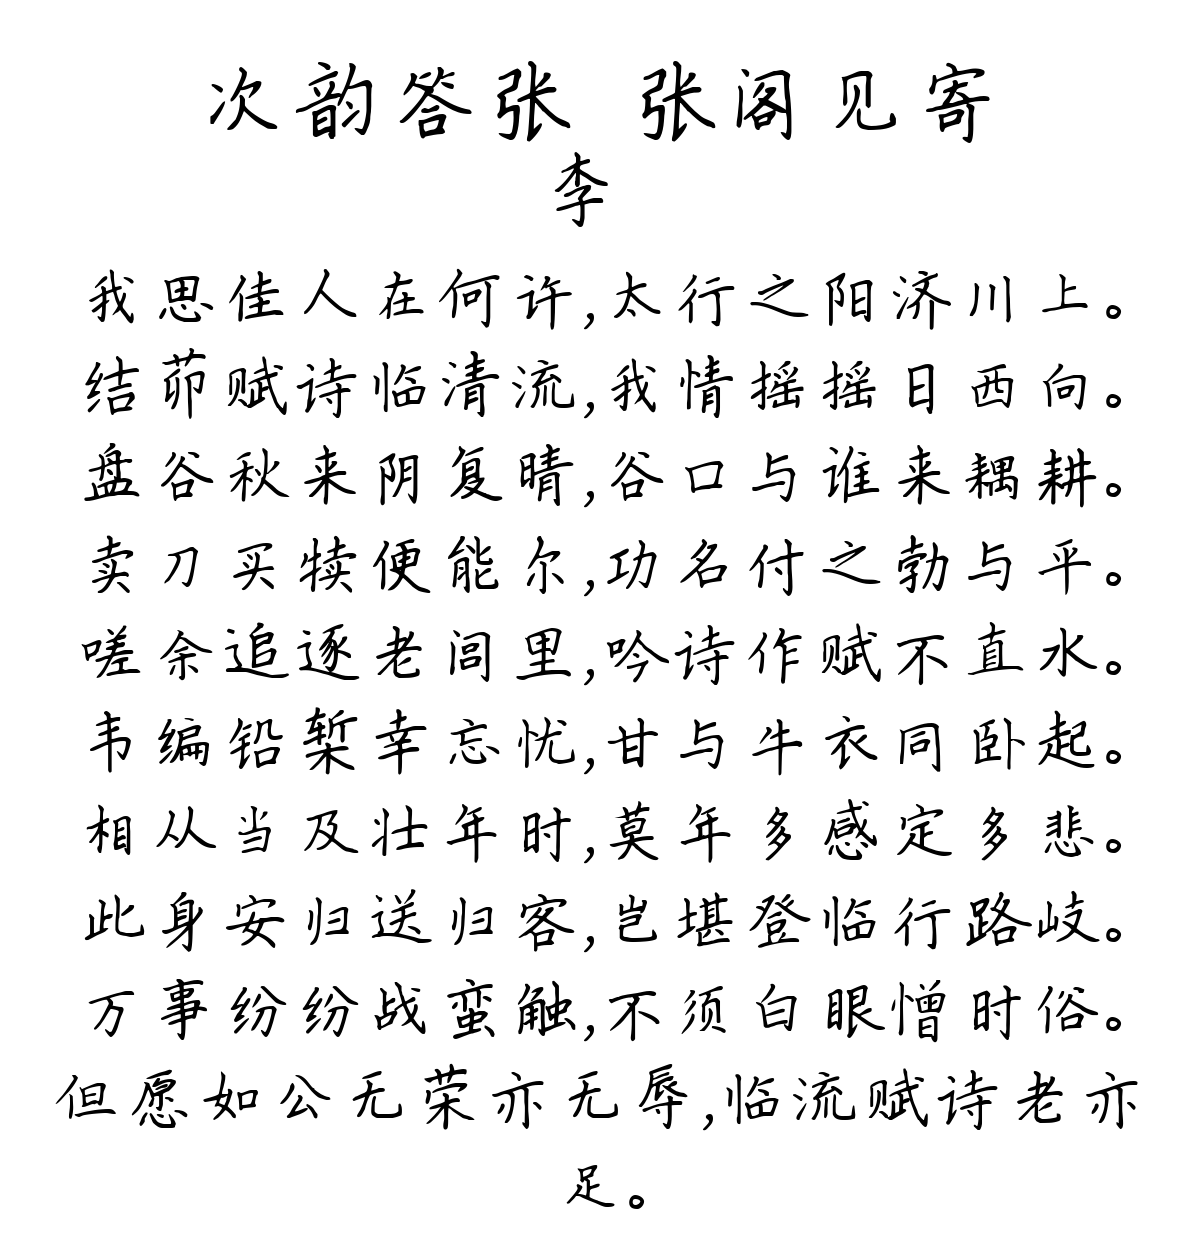 次韵答张 张阁见寄
李
我思佳人在何许,太行之阳济川上。
结茆赋诗临清流,我情摇摇日西向。
盘谷秋来阴复晴,谷口与谁来耦耕。
卖刀买犊便能尔,功名付之勃与平。
嗟余追逐老闾里,吟诗作赋不直水。
韦编铅椠幸忘忧,甘与牛衣同卧起。
相从当及壮年时,莫年多感定多悲。
此身安归送归客,岂堪登临行路岐。
万事纷纷战蛮触,不须白眼憎时俗。
但愿如公无荣亦无辱,临流赋诗老亦
足。